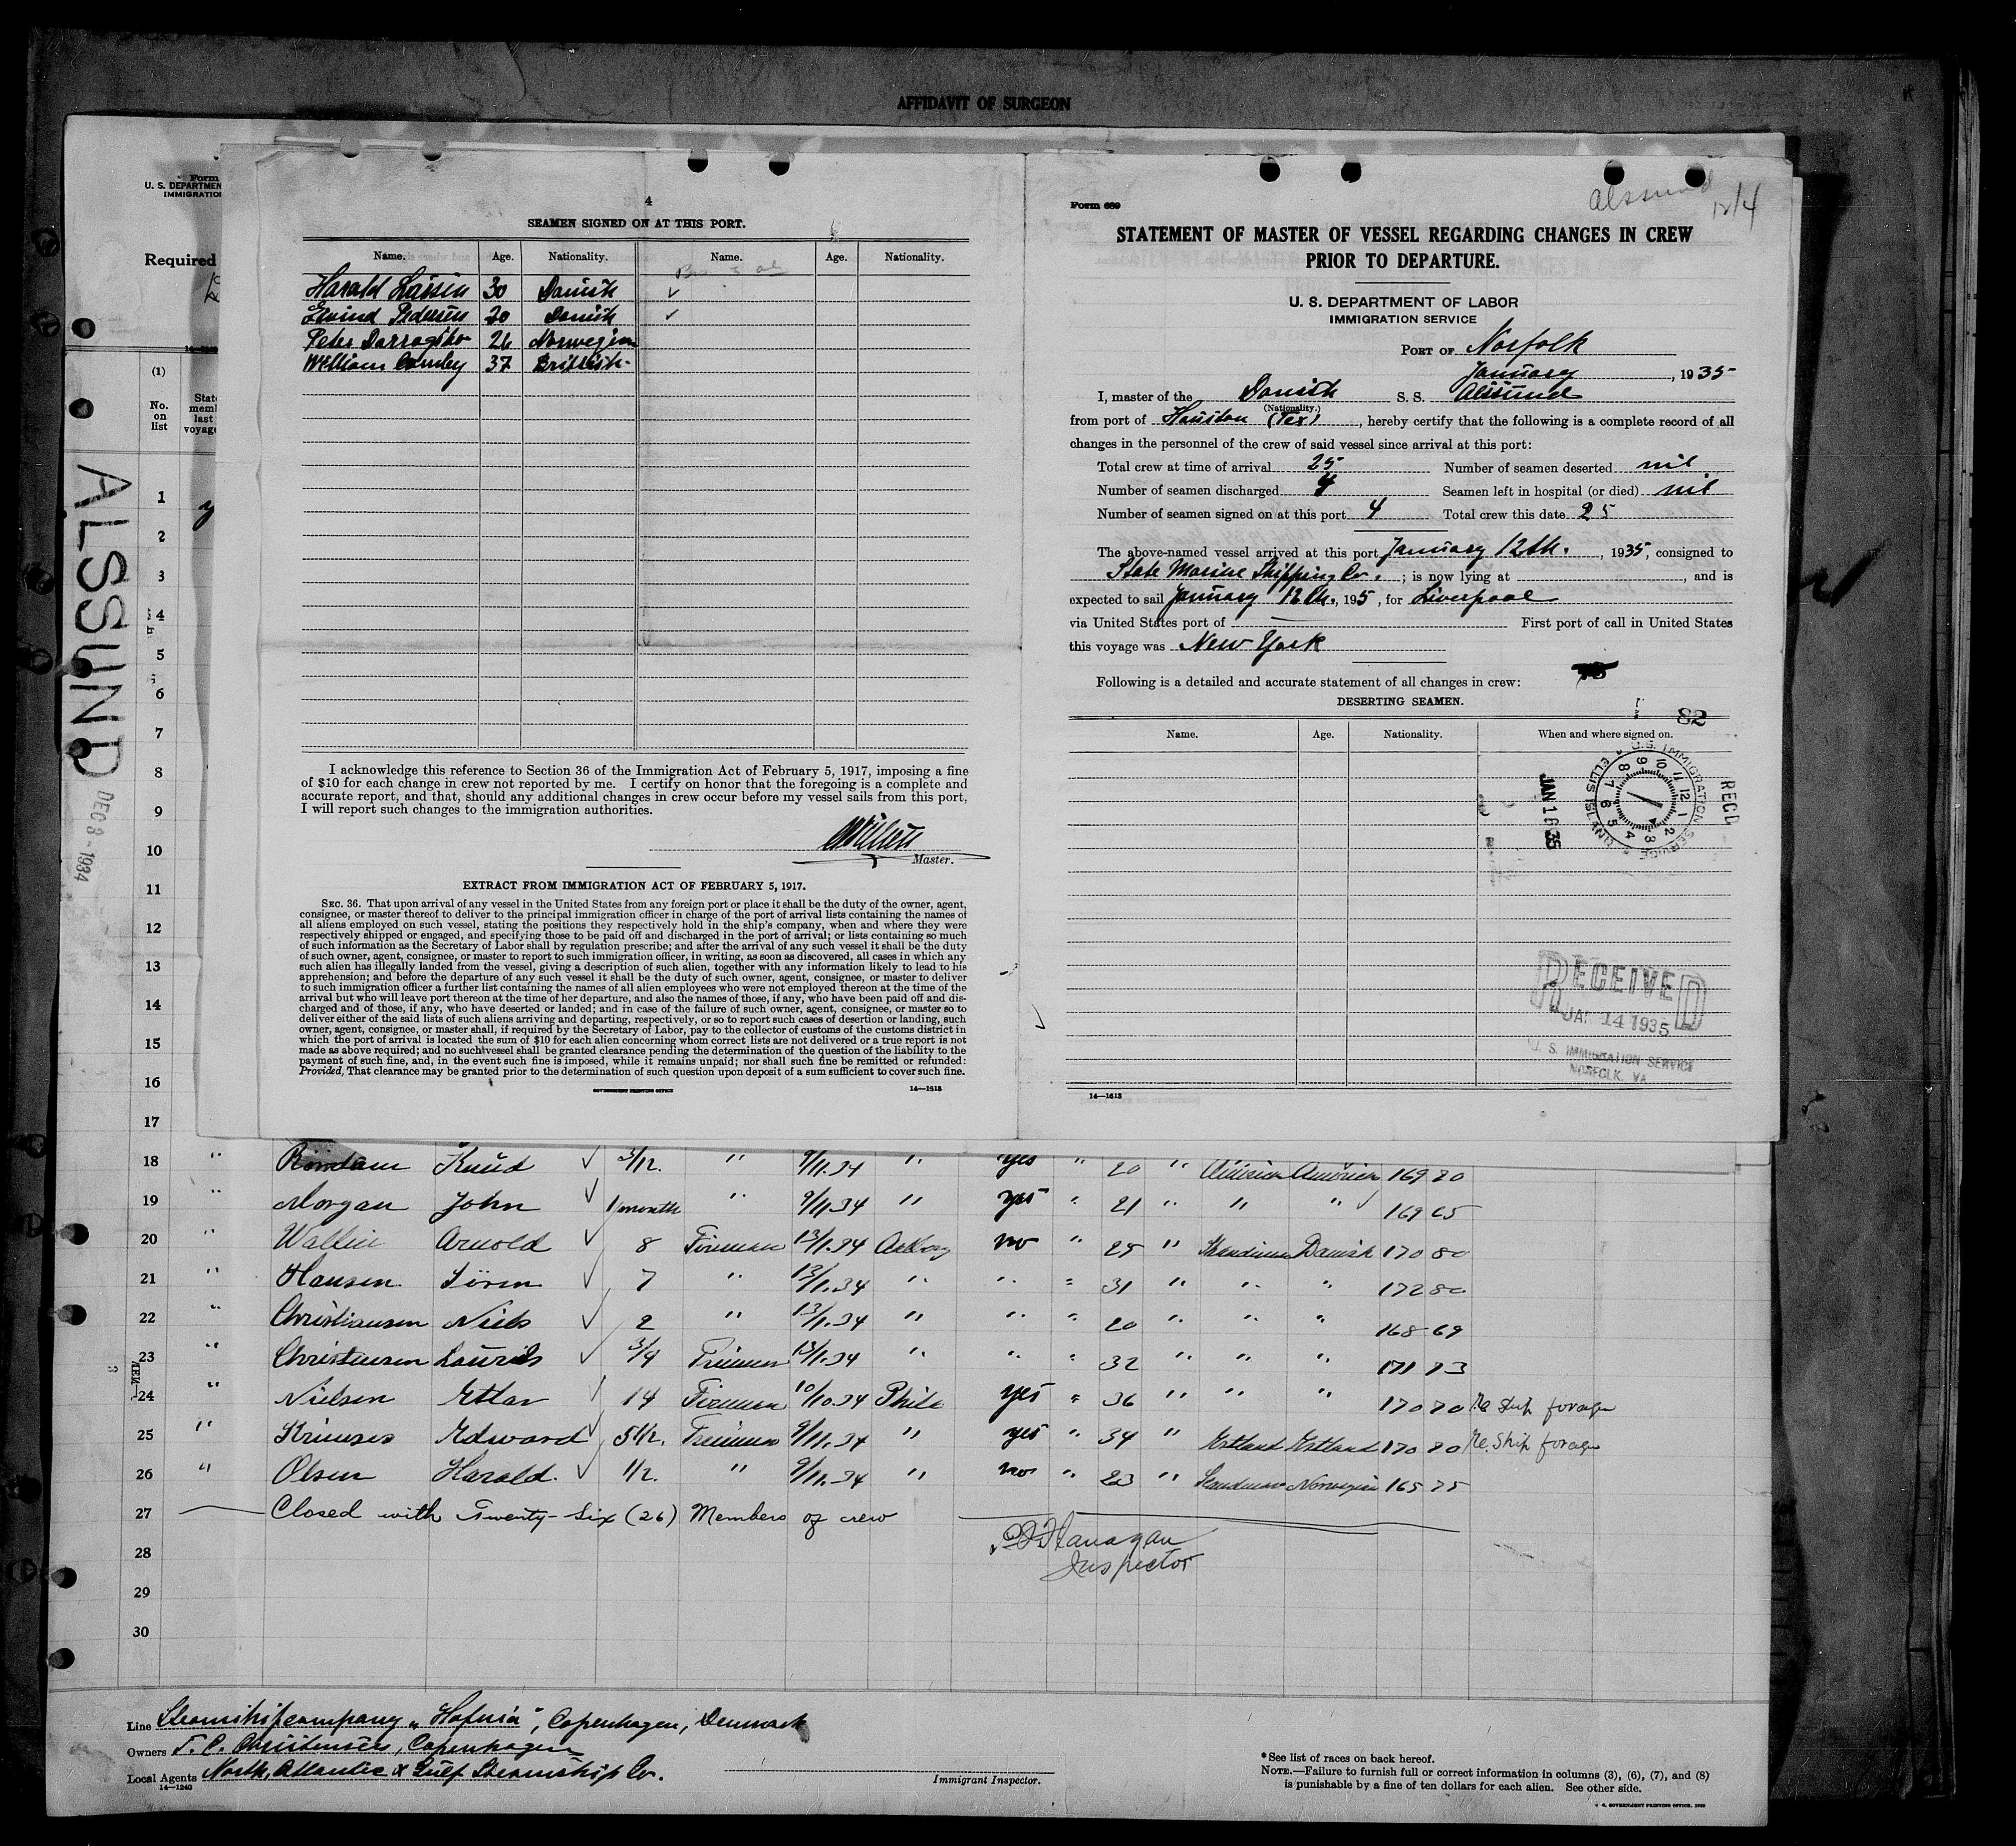 AFFIDAVIT OF SURGEON
Form
U. S. DEPARTMEN
IMMIGRATIO
Required
(1)
No.
on
list
State
memb
last
voyage
ALSSUND
DEC 8 - 1934
4
SEAMEN SIGNED ON AT THIS PORT.
Name. Age. Nationality. Name. Age. Nationality.
Harald Larsen 30 Danish ✓
Eivind Pedersen 20 Danish ✓
Peter 26 Norwegian
William 37 Brittish
I acknowledge this reference to Section 36 of the Immigration Act of February 5, 1917, imposing a fine
of $10 for each change in crew not reported by me. I certify on honor that the foregoing is a complete and
accurate report, and that, should any additional changes in crew occur before my vessel sails from this port,
I will report such changes to the immigration authorities.
Master.
EXTRACT FROM IMMIGRATION ACT OF FEBRUARY 5, 1917.
SEC. 36. That upon arrival of any vessel in the United States from any foreign port or place it shall be the duty of the owner, agent,
consignee, or master thereof to deliver to the principal immigration officer in charge of the port of arrival lists containing the names of
all aliens employed on such vessel, stating the positions they respectively hold in the ship's company, when and where they were
respectively shipped or engaged, and specifying those to be paid off and discharged in the port of arrival; or lists containing so much
of such information as the Secretary of Labor shall by regulation prescribe; and after the arrival of any such vessel it shall be the duty
of such owner, agent, consignee, or master to report to such immigration officer, in writing, as soon as discovered, all cases in which any
such alien has illegally landed from the vessel, giving a description of such alien, together with any information likely to lead to his
apprehension; and before the departure of any such vessel it shall be the duty of such owner, agent, consignee, or master to deliver
to such immigration officer a further list containing the names of all alien employees who were not employed thereon at the time of the
arrival but who will leave port thereon at the time of her departure, and also the names of those, if any, who have been paid off and dis-
charged and of those, if any, who have deserted or landed; and in case of the failure of such owner, agent, consignee, or master so to
deliver either of the said lists of such aliens arriving and departing, respectively, or so to report such cases of desertion or landing, such
owner, agent, consignee, or master shall, if required by the Secretary of Labor, pay to the collector of customs of the customs district in
which the port of arrival is located the sum of $10 for each alien concerning whom correct lists are not delivered or a true report is not
made as above required; and no such vessel shall be granted clearance pending the determination of the question of the liability to the
payment of such fine, and, in the event such fine is imposed, while it remains unpaid; nor shall such fine be remitted or refunded:
Provided, That clearance may be granted prior to the determination of such question upon deposit of a sum sufficient to cover such fine.
GOVERNMENT PRINTING OFFICE 14—1613
Form 689
Alssund
12/4
STATEMENT OF MASTER OF VESSEL REGARDING CHANGES IN CREW
PRIOR TO DEPARTURE.
U. S. DEPARTMENT OF LABOR
IMMIGRATION SERVICE
PORT OF Norfolk
January, 1935
I, master of the Danish S. S. Alssund
(Nationality.)
from port of Houston (Tex), hereby certify that the following is a complete record of all
changes in the personnel of the crew of said vessel since arrival at this port:
Total crew at time of arrival 25 Number of seamen deserted nil
Number of seamen discharged 4 Seamen left in hospital (or died) nil
Number of seamen signed on at this port 4 Total crew this date 25
The above-named vessel arrived at this port January 12th., 1935, consigned to
State Marine Shipping Co.; is now lying at , and is
expected to sail January 12th., 195, for Liverpool
via United States port of — First port of call in United States
this voyage was New York
Following is a detailed and accurate statement of all changes in crew:
DESERTING SEAMEN.
82
Name. Age. Nationality. When and where signed on.
U.S. IMMIGRATION SERVICE ELLIS ISLAND
JAN 16 35
REC'D
RECEIVED
JAN 14 1935
U. S. IMMIGRATION SERVICE
NORFOLK, VA.
14—1613
1
2
3
4
5
6
7
8
9
10
11
12
13
14
15
16
17
18 " Knud ✓ 3/12. " 9/11.34 " yes " 20 " American 169 70
19 " Morgan John ✓ 1 month " 9/11.34 " yes " 21 " " " ✓ 169 65
20 " Wallin Arnold ✓ 8 Fireman 13/1.34 no " 29 " Danish 170 80
21 " Hansen Sören ✓ 7 " 13/1.34 " " " 31 " " " 172 80
22 " Christiansen Niels ✓ 2 " 13/1.34 " " " 20 " " " 168 69
23 " Christensen Laurids ✓ 3/4 Trimmer 13/1.34 " " " 32 " " " 171 73
24 " Nielsen Ettar ✓ 14 Fireman 10/10.34 Phila yes " 36 " " " 170 70 Re Ship foreign
25 " Edward ✓ 5 1/2. Trimmer 9/11.34 " yes " 34 " Estland Estland 170 70 Re. Ship foreign
26 " Olsen Harald. ✓ 1/2. " 9/11.34 " no " 23 " Norwegian 165 75
27 — Closed with Twenty-Six (26) Members of crew
28 Flanagan
Inspector
29
30
Line Steamshipcompany „Hafnia", Copenhagen, Denmark
Owners T. C. Christensen, Copenhagen
Local Agents North, Atlantic & Gulf Steamship Co.
14—1240
Immigrant Inspector.
*See list of races on back hereof.
NOTE.—Failure to furnish full or correct information in columns (3), (6), (7), and (8)
is punishable by a fine of ten dollars for each alien. See other side.
U. S. GOVERNMENT PRINTING OFFICE